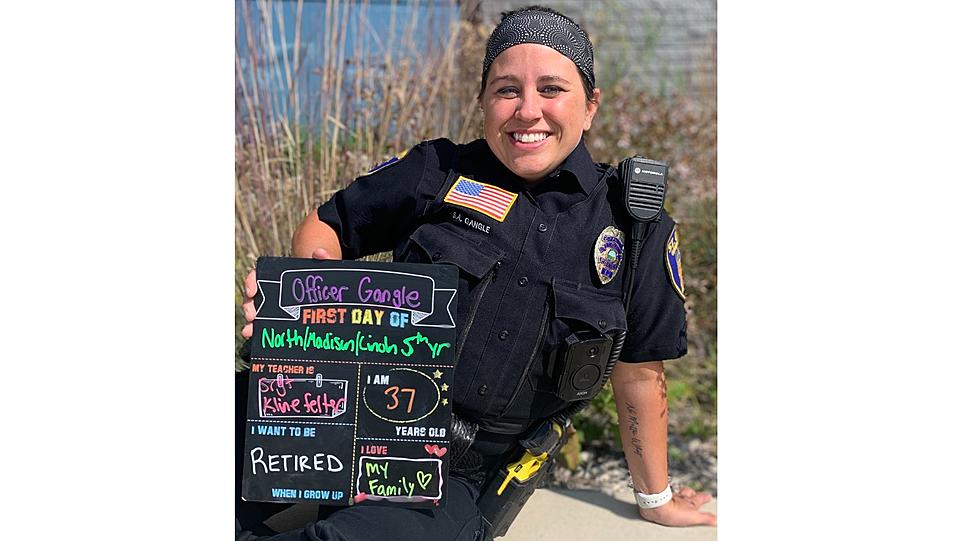 MOTOROLA
S.A. GANGLE
Officer Gangle
FIRST DAY OF
North/Madison/Lincoln 5th yr
MY TEACHER IS
Srgt
Klinefelter
I AM
37
YEARS OLD
I WANT TO BE
RETIRED
WHEN I GROW UP
I LOVE
My
Family
AXON